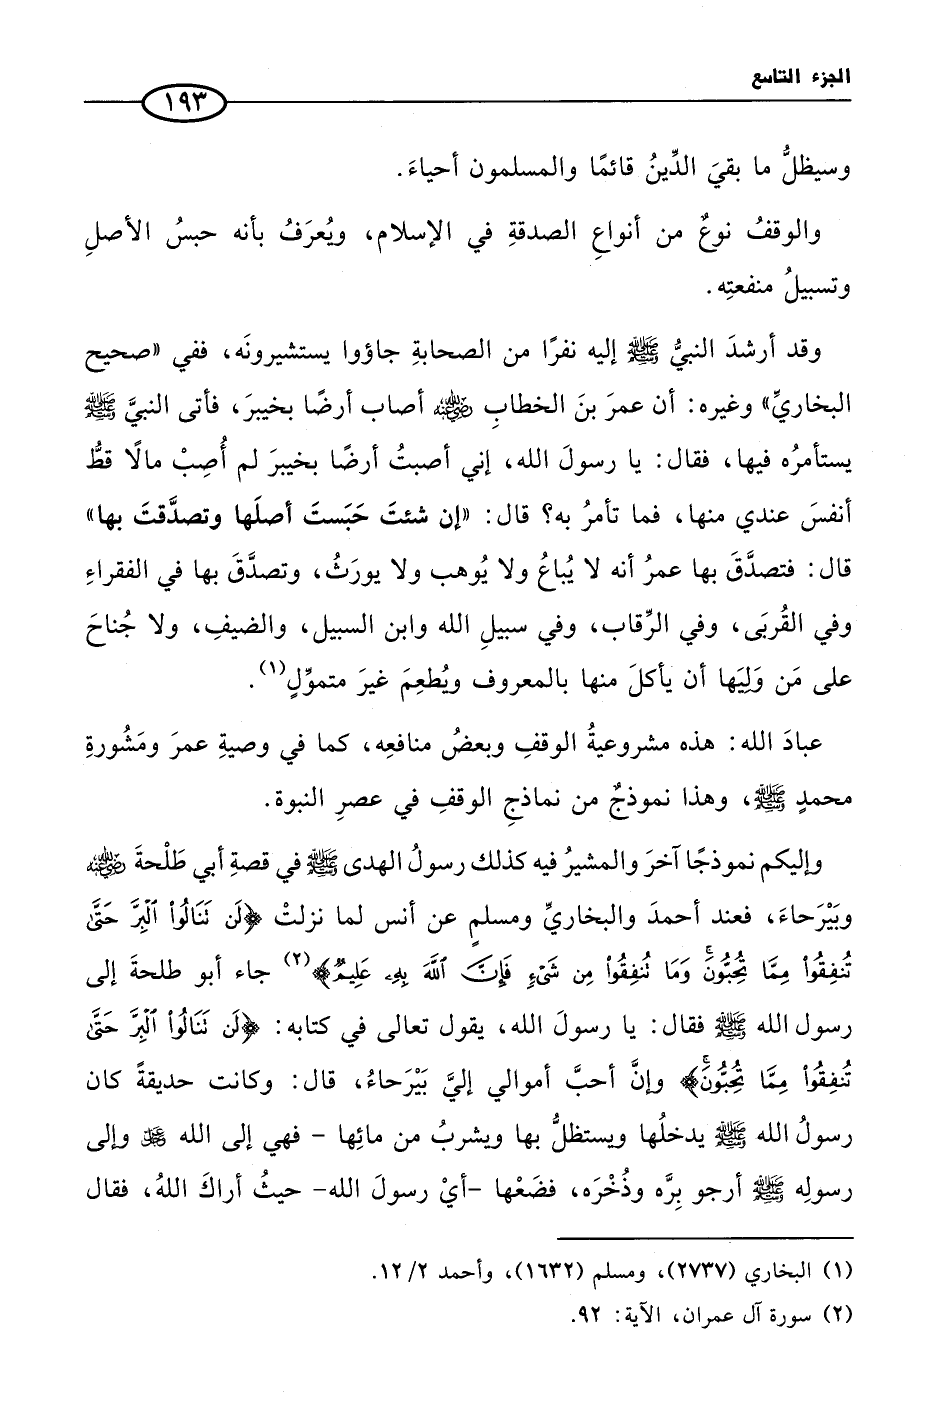 الجزء التاسع
١٩٣
وسيظلُّ ما بقيَ الدِّينُ قائمًا والمسلمون أحياءَ.
والوقفُ نوعٌ من أنواعِ الصدقةِ في الإسلام، ويُعرَفُ بأنه حبسُ الأصلِ
وتسبيلُ منفعتِه.
وقد أرشدَ النبيُّ ﷺ إليه نفرًا من الصحابةِ جاؤوا يستشيرونَه، ففي «صحيح
البخاريِّ» وغيره: أن عمرَ بنَ الخطابِ رضي الله عنه أصاب أرضًا بخيبرَ، فأتى النبيَّ ﷺ
يستأمرُه فيها، فقال: يا رسولَ الله، إني أصبتُ أرضًا بخيبرَ لم أُصِبْ مالًا قطُّ
أنفسَ عندي منها، فما تأمرُ به؟ قال: «إن شئتَ حَبَستَ أصلَها وتصدَّقتَ بها»
قال: فتصدَّقَ بها عمرُ أنه لا يُباعُ ولا يُوهب ولا يورَثُ، وتصدَّقَ بها في الفقراءِ
وفي القُربَى، وفي الرِّقاب، وفي سبيلِ الله وابن السبيل، والضيفِ، ولا جُناحَ
على مَن وَلِيَها أن يأكلَ منها بالمعروف ويُطعِمَ غيرَ متموِّلٍ(١).
عبادَ الله: هذه مشروعيةُ الوقفِ وبعضُ منافعِه، كما في وصيةِ عمرَ ومَشُورةِ
محمدٍ ﷺ، وهذا نموذجٌ من نماذجِ الوقفِ في عصرِ النبوة.
وإليكم نموذجًا آخرَ والمشيرُ فيه كذلك رسولُ الهدى ﷺ في قصةِ أبي طَلْحةَ رضي الله عنه
وبَيْرَحاءَ، فعند أحمدَ والبخاريِّ ومسلمٍ عن أنس لما نزلتْ ﴿لَن تَنَالُوا۟ ٱلْبِرَّ حَتَّىٰ
تُنفِقُوا۟ مِمَّا تُحِبُّونَۚ وَمَا تُنفِقُوا۟ مِن شَىْءٍ فَإِنَّ ٱللَّهَ بِهِۦ عَلِيمٌ﴾(٢) جاء أبو طلحةَ إلى
رسول الله ﷺ فقال: يا رسولَ الله، يقول تعالى في كتابه: ﴿لَن تَنَالُوا۟ ٱلْبِرَّ حَتَّىٰ
تُنفِقُوا۟ مِمَّا تُحِبُّونَۚ﴾ وإنَّ أحبَّ أموالي إليَّ بَيْرَحاءُ، قال: وكانت حديقةً كان
رسولُ الله ﷺ يدخلُها ويستظلُّ بها ويشربُ من مائِها - فهي إلى الله عز وجل وإلى
رسولِه ﷺ أرجو بِرَّه وذُخْرَه، فضَعْها -أيْ رسولَ الله- حيثُ أراكَ اللهُ، فقال
(١) البخاري (٢٧٣٧)، ومسلم (١٦٣٢)، وأحمد ١٢/٢.
(٢) سورة آل عمران، الآية: ٩٢.